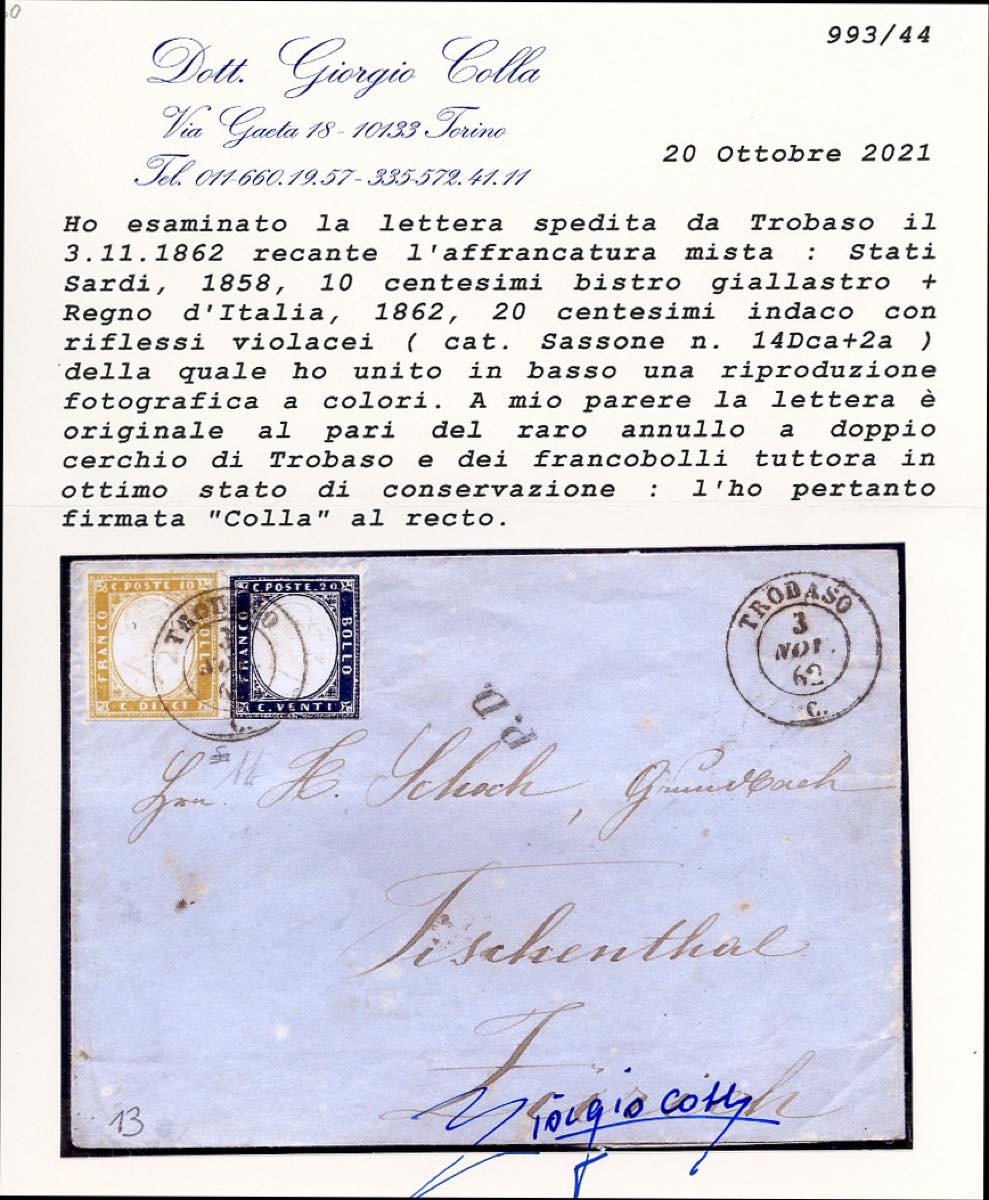 993/44
Dott. Giorgio Colla
Via Gaeta 18 - 10133 Torino
Tel. 011-660.19.57 - 335-572.41.11
20 Ottobre 2021
Ho esaminato la lettera spedita da Trobaso il
3.11.1862 recante l'affrancatura mista : Stati
Sardi, 1858, 10 centesimi bistro giallastro +
Regno d'Italia, 1862, 20 centesimi indaco con
riflessi violacei ( cat. Sassone n. 14Dca+2a )
della quale ho unito in basso una riproduzione
fotografica a colori. A mio parere la lettera è
originale al pari del raro annullo a doppio
cerchio di Trobaso e dei francobolli tuttora in
ottimo stato di conservazione : l'ho pertanto
firmata "Colla" al recto.
C. POSTE. 10
FRANCO
BOLLO
C. DIECI
C. POSTE. 20
FRANCO
BOLLO
C. VENTI
TROBASO
3
C.
TROBASO
3
NOV.
62
C.
P.D.
Hrn. H. Schoch, Grundbach
Fischenthal
Giorgio Colla
13